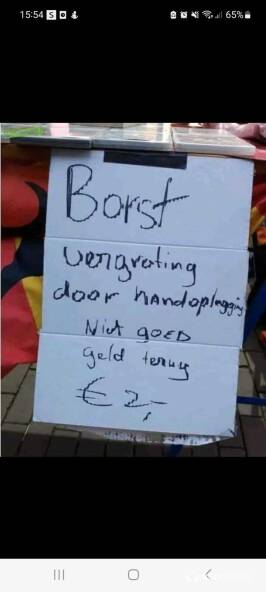 15:54 65%
Borst
vergroting
door handoplegging
Niet GOED
geld terug
€ 2,-